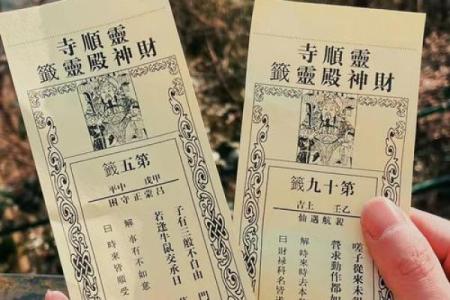 靈順寺
財神殿靈籤
第五籤
甲戌 中平
呂蒙正守困
子有三般不自由 門
若逢牛鼠交承日
解 事有不如意
曰 時來皆順受
靈順寺
財神殿靈籤
第十九籤
乙壬 上吉
航遇仙
嗟子從來未
營求動作都如
解 時來時去本
曰 財祿科名皆